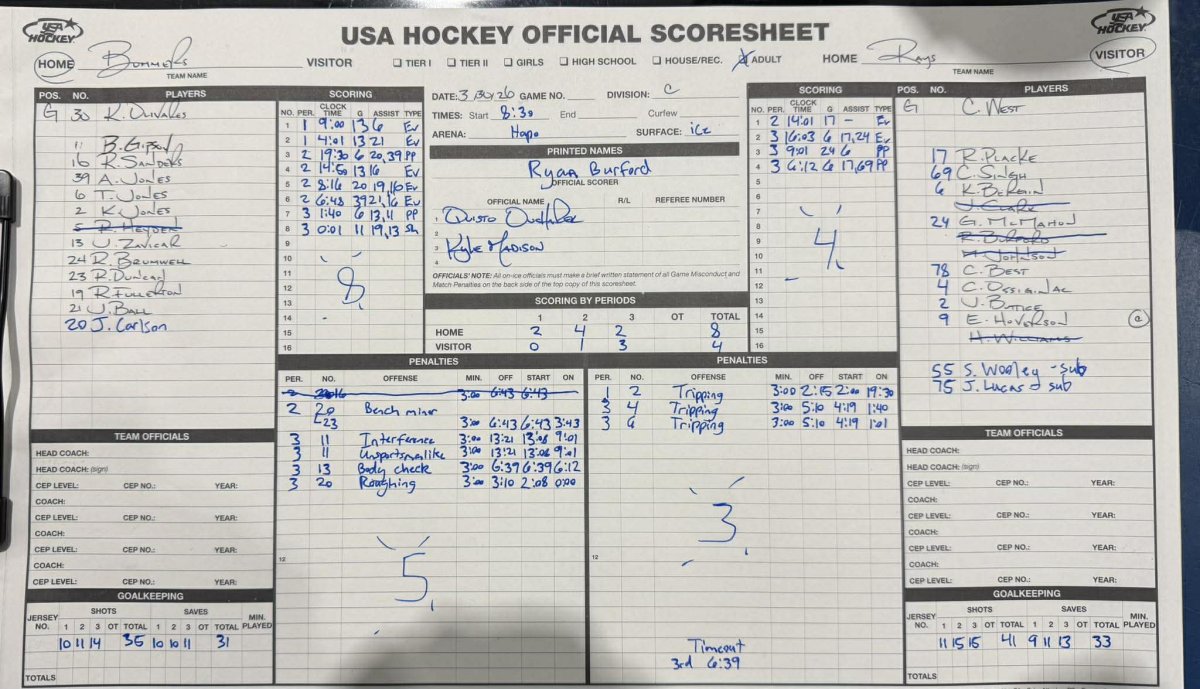 USA HOCKEY
USA HOCKEY OFFICIAL SCORESHEET
USA HOCKEY
HOME Bommers VISITOR
TEAM NAME
TIER I TIER II GIRLS HIGH SCHOOL HOUSE/REC. ADULT
HOME Rays VISITOR
TEAM NAME
POS. NO. PLAYERS
G 30 R. Olivares
11 B. Gipson
16 R. Sanders
39 A. Jones
6 T. Jones
2 K. Jones
5 R. Heyden
13 J. Zavicar
24 R. Brumwell
23 R. Duncan
19 R. Fullerton
21 J. Ball
20 J. Carlson
SCORING
NO. PER. CLOCK TIME G ASSIST TYPE
1 1 9:00 13 6 Ev
2 1 4:01 13 21 Ev
3 2 19:30 6 20,39 PP
4 2 14:50 13 16 Ev
5 2 8:16 20 19,16 Ev
6 2 6:48 39 21,16 Ev
7 3 1:40 6 13,11 PP
8 3 0:01 11 19,13 Sh
9
10
11
12
13
14
15
16
8
DATE: 3/30/26 GAME NO. DIVISION: C
TIMES: Start 8:30 End Curfew
ARENA: Hapo SURFACE: ice
PRINTED NAMES
Ryan Burford
OFFICIAL SCORER
OFFICIAL NAME R/L REFEREE NUMBER
1
2
3 Kyle Madison
4
OFFICIALS' NOTE: All on-ice officials must make a brief written statement of all Game Misconduct and
Match Penalties on the back side of the top copy of this scoresheet.
SCORING BY PERIODS
1 2 3 OT TOTAL
HOME 2 4 2 8
VISITOR 0 1 3 4
SCORING
NO. PER. CLOCK TIME G ASSIST TYPE
1 2 14:01 17 - Ev
2 3 16:03 6 17,24 Ev
3 3 9:01 24 6 PP
4 3 6:12 6 17,69 PP
5
6
7
8
9
10
11
12
13
14
15
16
4
POS. NO. PLAYERS
G C. West
17 R. Placke
69 C. Singh
6 K. Bergin
J. Clark
24 G. McMahon
R. Burford
M. Johnson
78 C. Best
4 C. Ossignac
2 J. Butice
9 E. Hoverson C
H. Williams
55 S. Wooley - sub
75 J. Lucas - sub
PENALTIES
PER. NO. OFFENSE MIN. OFF START ON
2 3:00 6:43 6:43
2 20 Bench minor
23 3:00 6:43 6:43 3:43
3 11 Interference 3:00 13:21 13:08 9:01
3 11 Unsportsmalike 3:00 13:21 13:08 9:01
3 13 Body check 3:00 6:39 6:39 6:12
3 20 Roughing 3:00 3:10 2:08 0:00
12
5
PENALTIES
PER. NO. OFFENSE MIN. OFF START ON
1 2 Tripping 3:00 2:15 2:00 19:30
3 4 Tripping 3:00 5:10 4:19 1:40
3 6 Tripping 3:00 5:10 4:19 1:01
12
3
Timeout
3rd 6:39
TEAM OFFICIALS
HEAD COACH:
HEAD COACH: (sign)
CEP LEVEL: CEP NO.: YEAR:
COACH:
CEP LEVEL: CEP NO.: YEAR:
COACH:
CEP LEVEL: CEP NO.: YEAR:
COACH:
CEP LEVEL: CEP NO.: YEAR:
GOALKEEPING
JERSEY NO. SHOTS 1 2 3 OT TOTAL SAVES 1 2 3 OT TOTAL MIN. PLAYED
10 11 14 35 10 10 11 31
TOTALS
TEAM OFFICIALS
HEAD COACH:
HEAD COACH: (sign)
CEP LEVEL: CEP NO.: YEAR:
COACH:
CEP LEVEL: CEP NO.: YEAR:
COACH:
CEP LEVEL: CEP NO.: YEAR:
COACH:
CEP LEVEL: CEP NO.: YEAR:
GOALKEEPING
JERSEY NO. SHOTS 1 2 3 OT TOTAL SAVES 1 2 3 OT TOTAL MIN. PLAYED
11 15 15 41 9 11 13 33
TOTALS